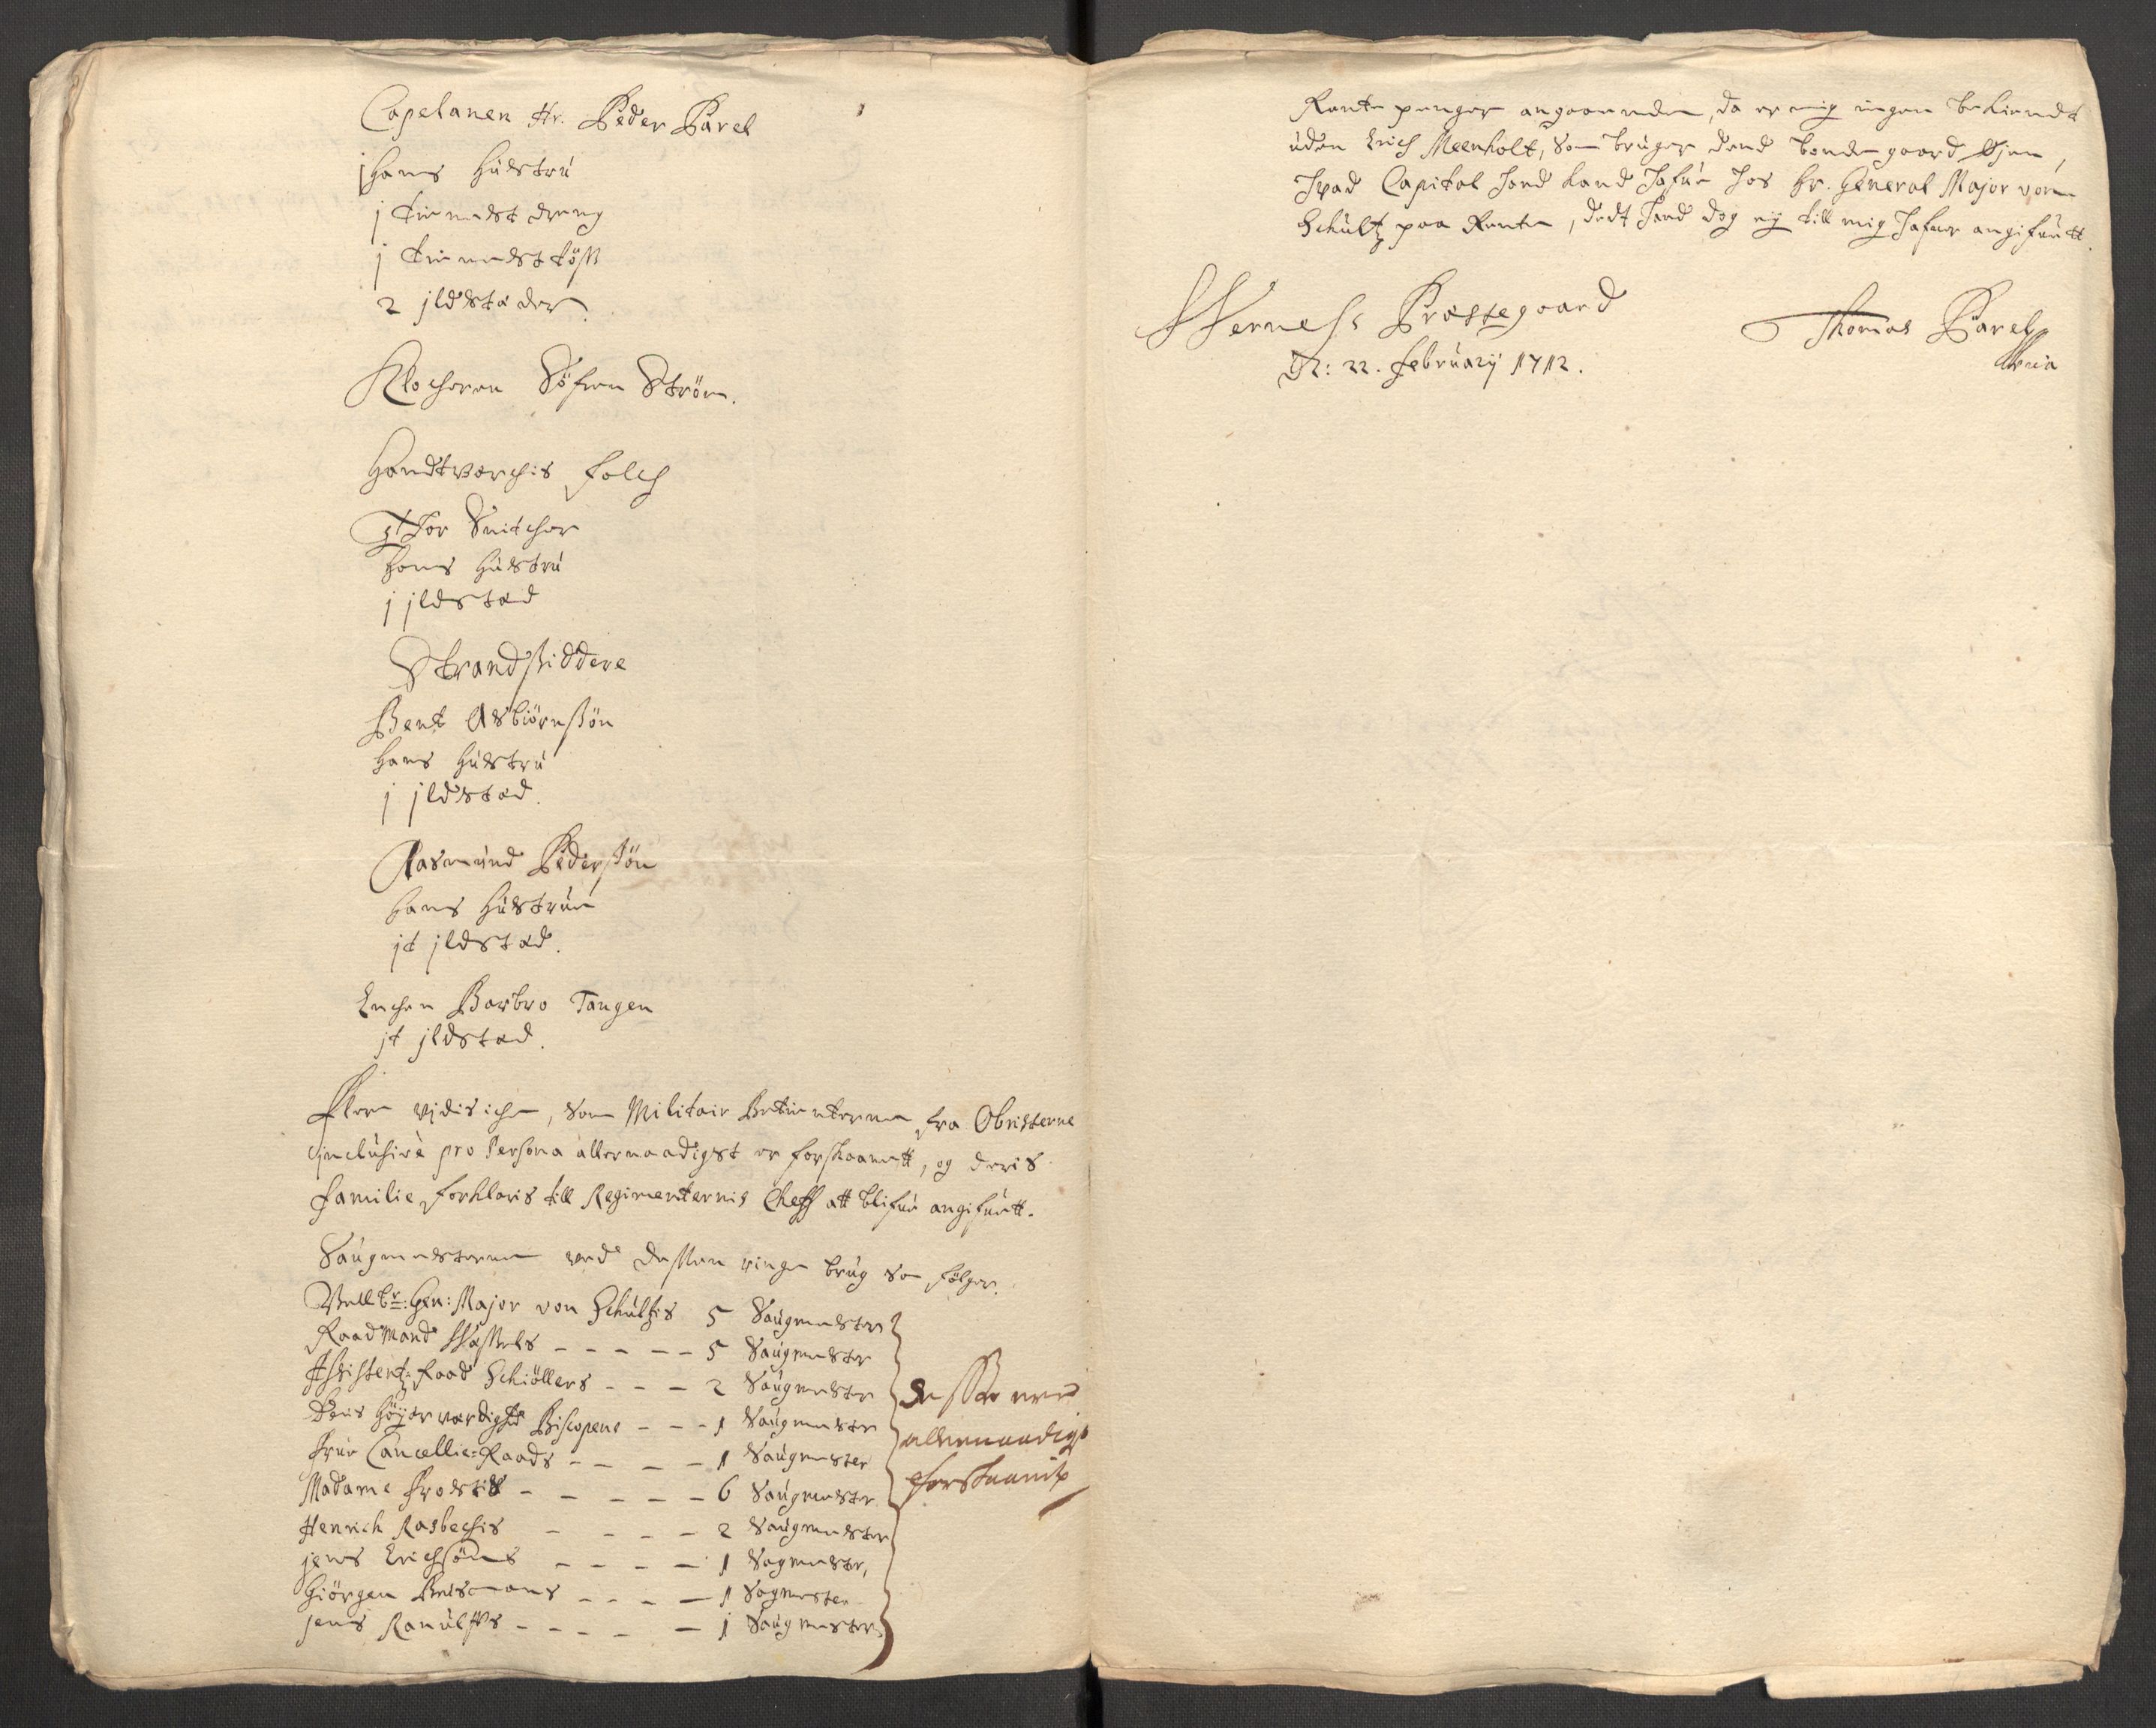 Capelanen Hr. Peder Parel
hans Hüstrü
j tienist dreng
j tieniste töß
2 jldstæder.
Klocheren Söfren Ström.
Handtværchis folch
Snitcher
hans Hüstrü
j jldstæd
Strandsiddere
Bent Asbiörnsön
Hans Hüstrü
j jldstæd.
Aasmünd Pedersön
hans Hüstrü
jt jldstæd.
Enchen Barbro Tangen
jt jldstæd.
Flere vjdis iche, som Militair Betienterne fra Obristerne
jnclüsive pro Persona allernaadigst er forskaanett, og deris
familie forklaris till Regimenternis Cheff att blifue angifuett.
Saugmesterne ved deßen ringe brüg som fölger.
Vellbr: Gen: Major von Schültzis 5 Saügmestere
Raadmand - - - - - 5 Saügmester
Assistentz-Raad Schiöllers - - - 2 Saügmester
Deris Höjærværdighed Biscopens - - - 1 Saügmester
Frue Cancellie-Raads - - - - 1 Saügmester
Madame Frostis - - - - - 6 Saügmester
Henrich Rasbechis - - - - 2 Saügmester
jens Erichsöns - - - - 1 Sagmester,
Giörgen - - - - 1 Sagmester
jens Ranülffs - - - - - j Saugmester
Disse ere
allernaadigst
forskaanit
Rente penger angaaende, da er mig ingen bekiendt
üden Erich Meenholt, som brüger dend bondegaard Øjen,
hvad Capital hand kand hafue hos Hr. General Major von
Schültz paa Rente, dedt hand dog ej till mig hafuer angifuett.
Werness Præstegaard
D: 22. februarij 1712.
Thomas Parelj
Mpria